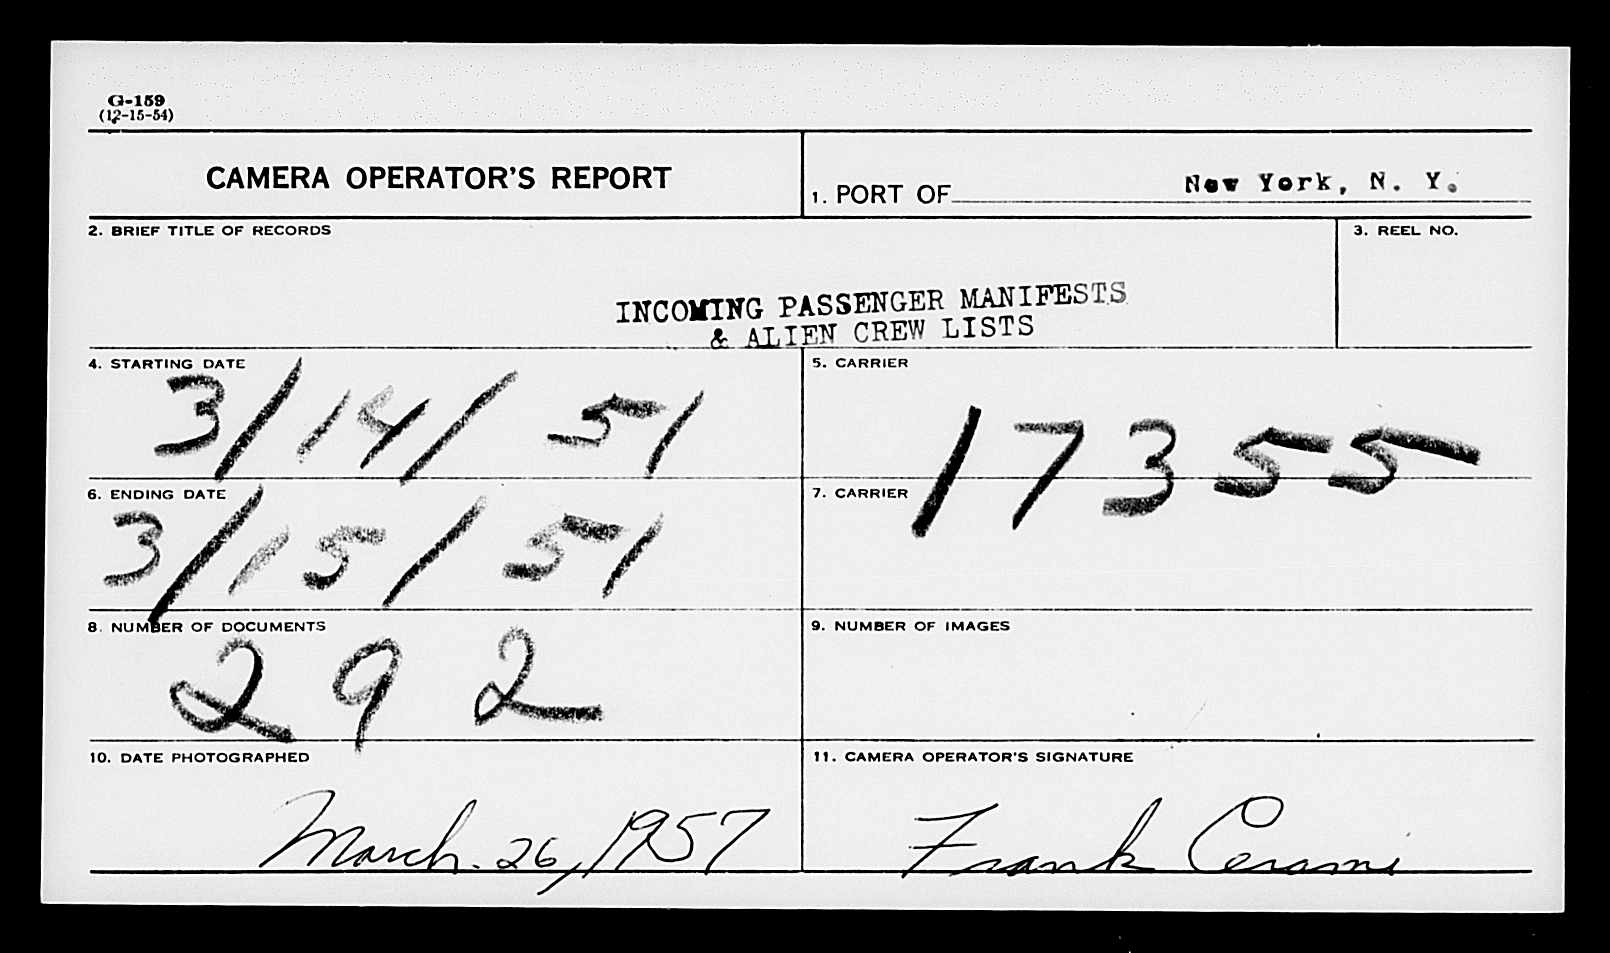 G-159
(12-15-54)
CAMERA OPERATOR'S REPORT
1. PORT OF New York, N. Y.
2. BRIEF TITLE OF RECORDS
3. REEL NO.
INCOMING PASSENGER MANIFESTS
& ALIEN CREW LISTS
4. STARTING DATE
3/14/51
5. CARRIER
17355
6. ENDING DATE
3/15/51
7. CARRIER
8. NUMBER OF DOCUMENTS
292
9. NUMBER OF IMAGES
10. DATE PHOTOGRAPHED
March 26, 1957
11. CAMERA OPERATOR'S SIGNATURE
Frank Cerami